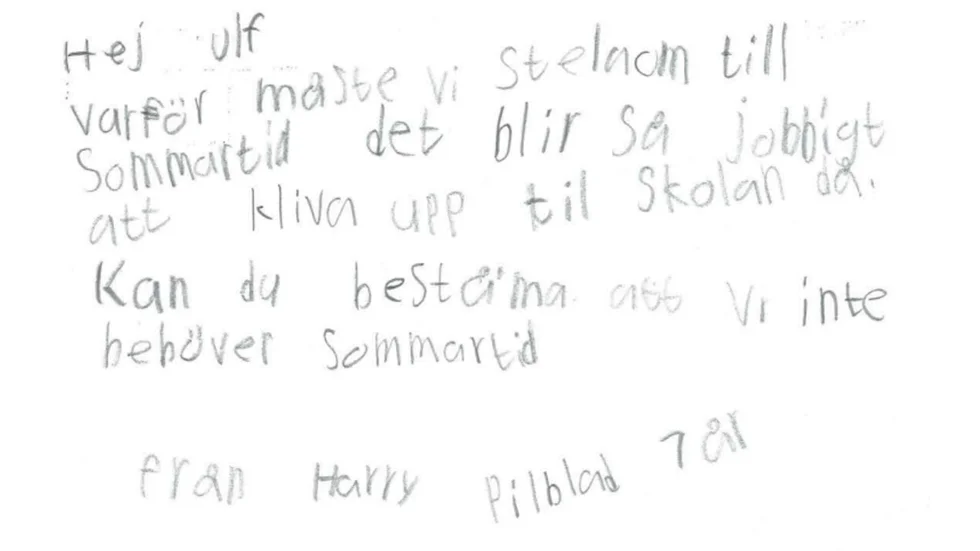 Hej ulf
varför måste vi stelaom till
Sommartid det blir så jobbigt
att kliva upp til Skolan då.
Kan du bestäma att vi inte
behöver Sommartid
från Harry Pilblad 7 år